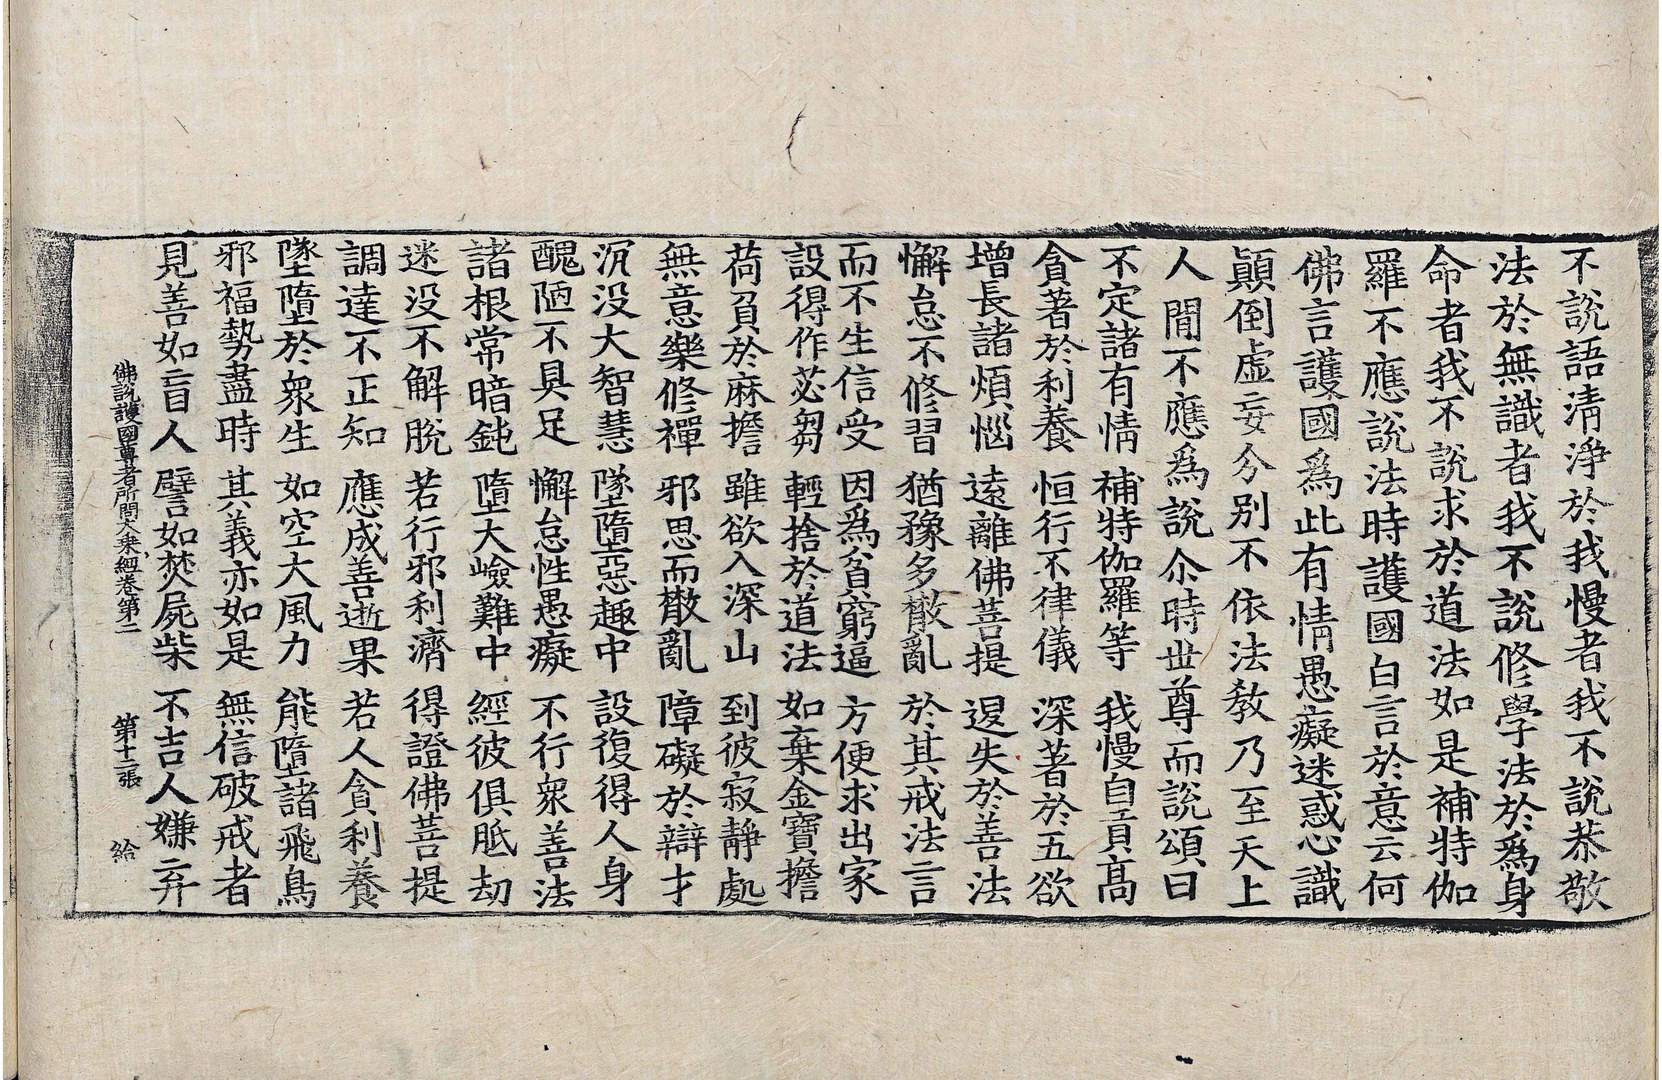 不說語清淨於我慢者我不說恭敬
法於無識者我不說修學法於為身
命者我不說求於道法如是補特伽
羅不應說法時護國白言於意云何
佛言護國為此有情愚癡迷惑心識
顛倒虛妄分別不依法教乃至天上
人間不應為說尒時世尊而說頌曰
不定諸有情 補特伽羅等 我慢自貢高
貪著於利養 恒行不律儀 深著於五欲
增長諸煩惱 遠離佛菩提 退失於善法
懈怠不修習 猶豫多散亂 於其戒法言
而不生信受 因為貧窮逼 方便求出家
設得作苾芻 輕捨於道法 如棄金寶擔
荷負於麻擔 雖欲入深山 到彼寂靜處
無意樂修禪 邪思而散亂 障礙於辯才
沉没大智慧 墜墮惡趣中 設復得人身
醜陋不具足 懈怠性愚癡 不行眾善法
諸根常暗鈍 墮大嶮難中 經彼俱胝劫
迷没不解脫 若行邪利濟 得證佛菩提
調達不正知 應成善逝果 若人貪利養
墜墮於眾生 如空大風力 能墮諸飛鳥
邪福勢盡時 其義亦如是 無信破戒者
見善如盲人 譬如焚屍柴 不吉人嫌弃
佛說護國尊者所問大乘經卷第二 第十二張 給